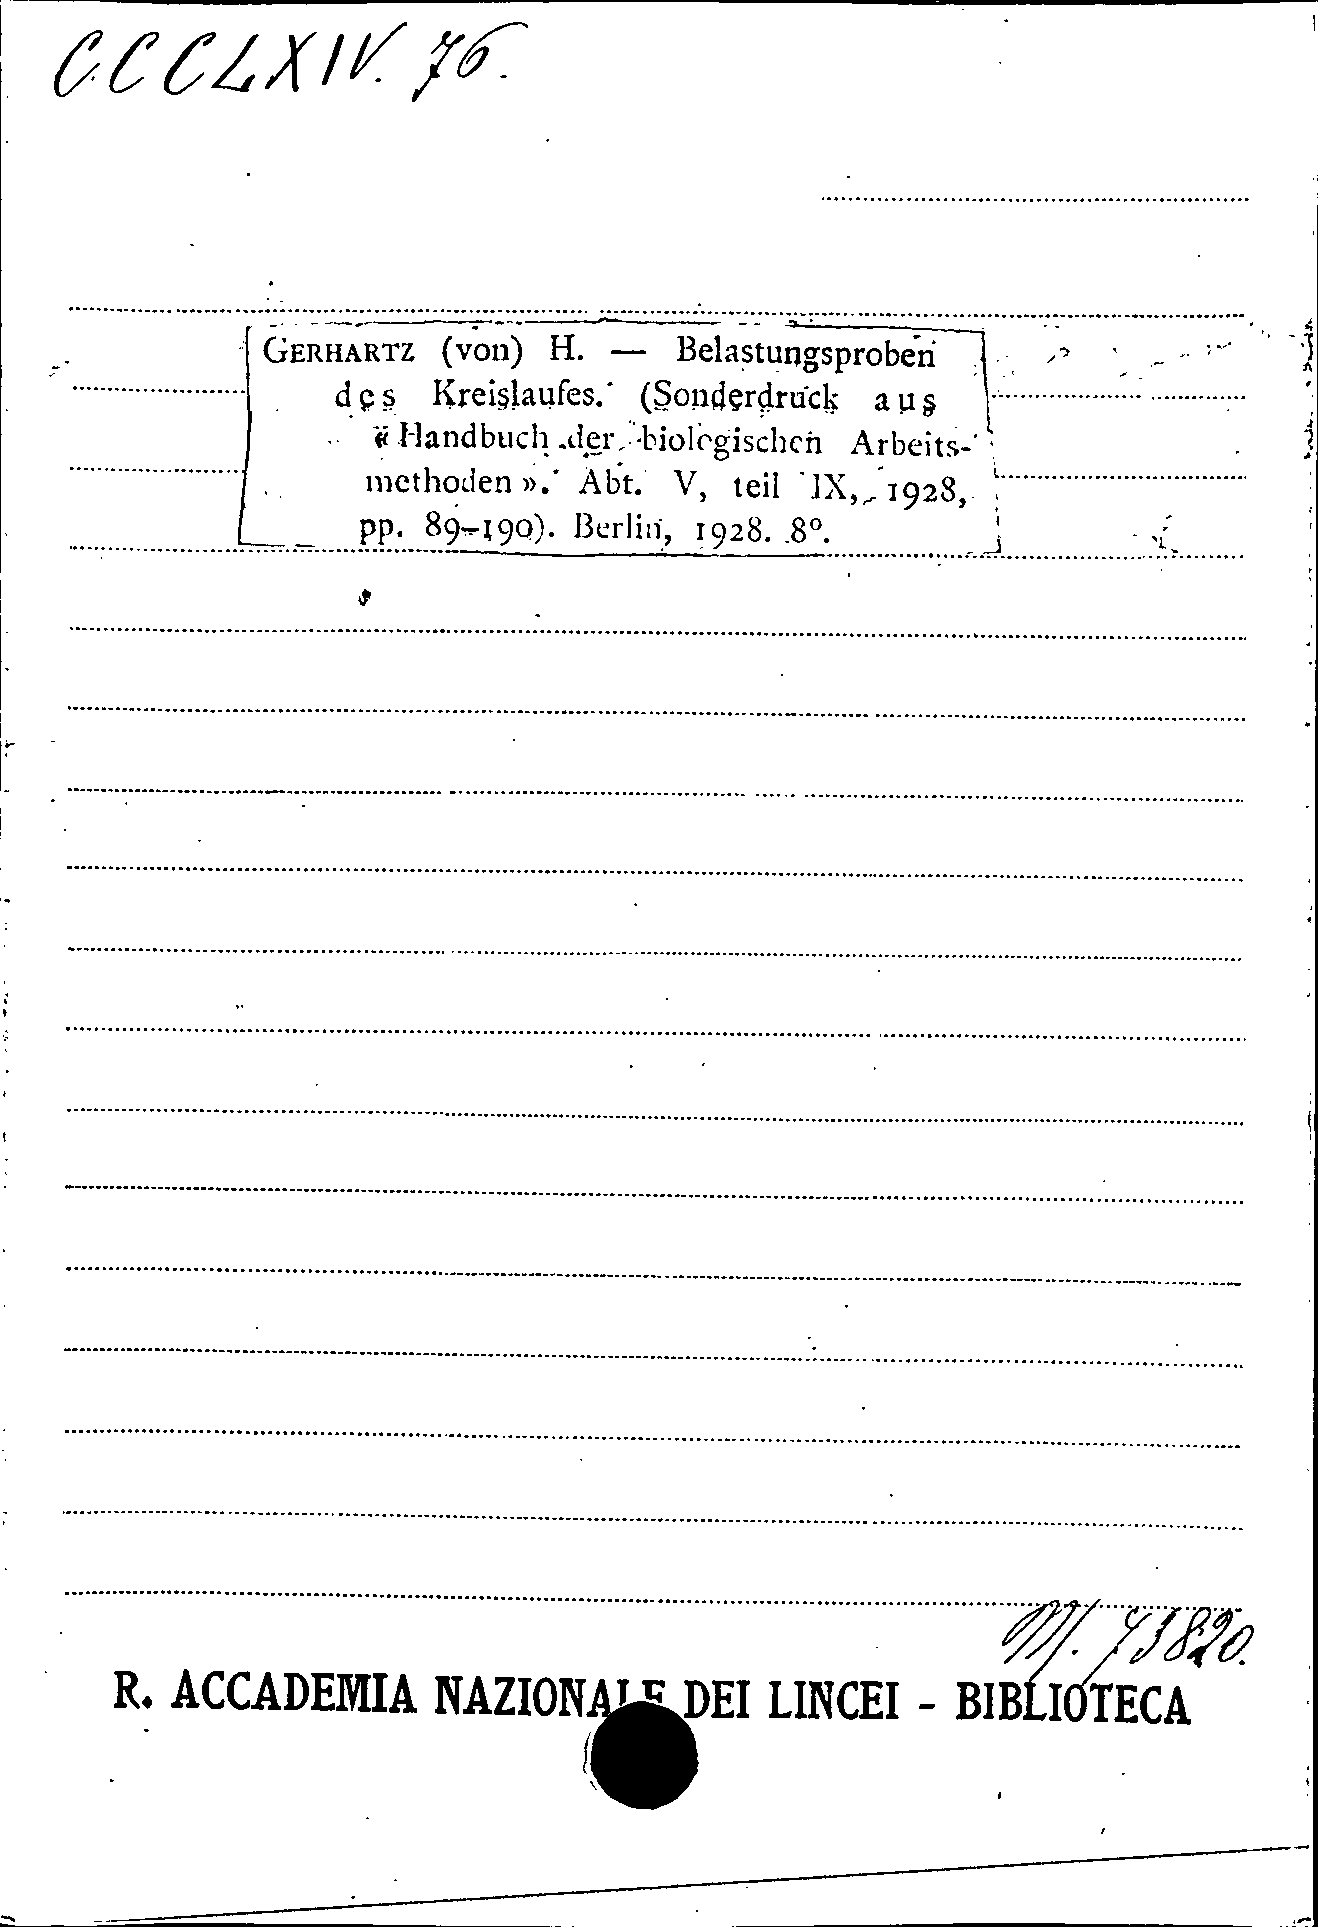 CCCLXIV. 76.
GERHARTZ (von) H. — Belastungsproben
des Kreislaufes. (Sonderdruck aus
« Handbuch der biologischen Arbeits-
methoden ». Abt. V, teil IX, 1928,
pp. 89-190). Berlin, 1928. 8º.
M. 73820.
R. ACCADEMIA NAZIONALE DEI LINCEI - BIBLIOTECA